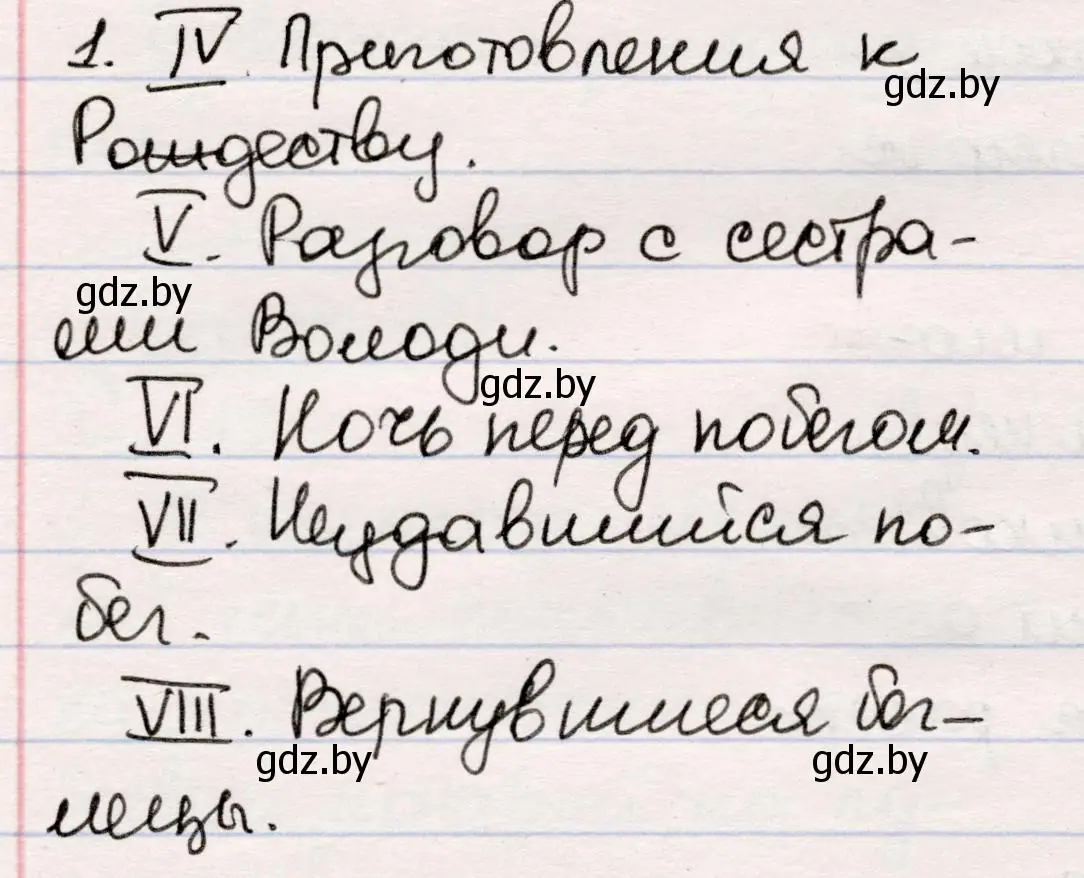 1. IV. Приготовления к
gdz.by
Рождеству.
V. Разговор с сестра-
gdz.by
ми Володи.
gdz.by
VI. Ночь перед побегом.
VII. Неудавшийся по-
бег.
VIII. Вернувшиеся бег-
gdz.by gdz.by
лецы.